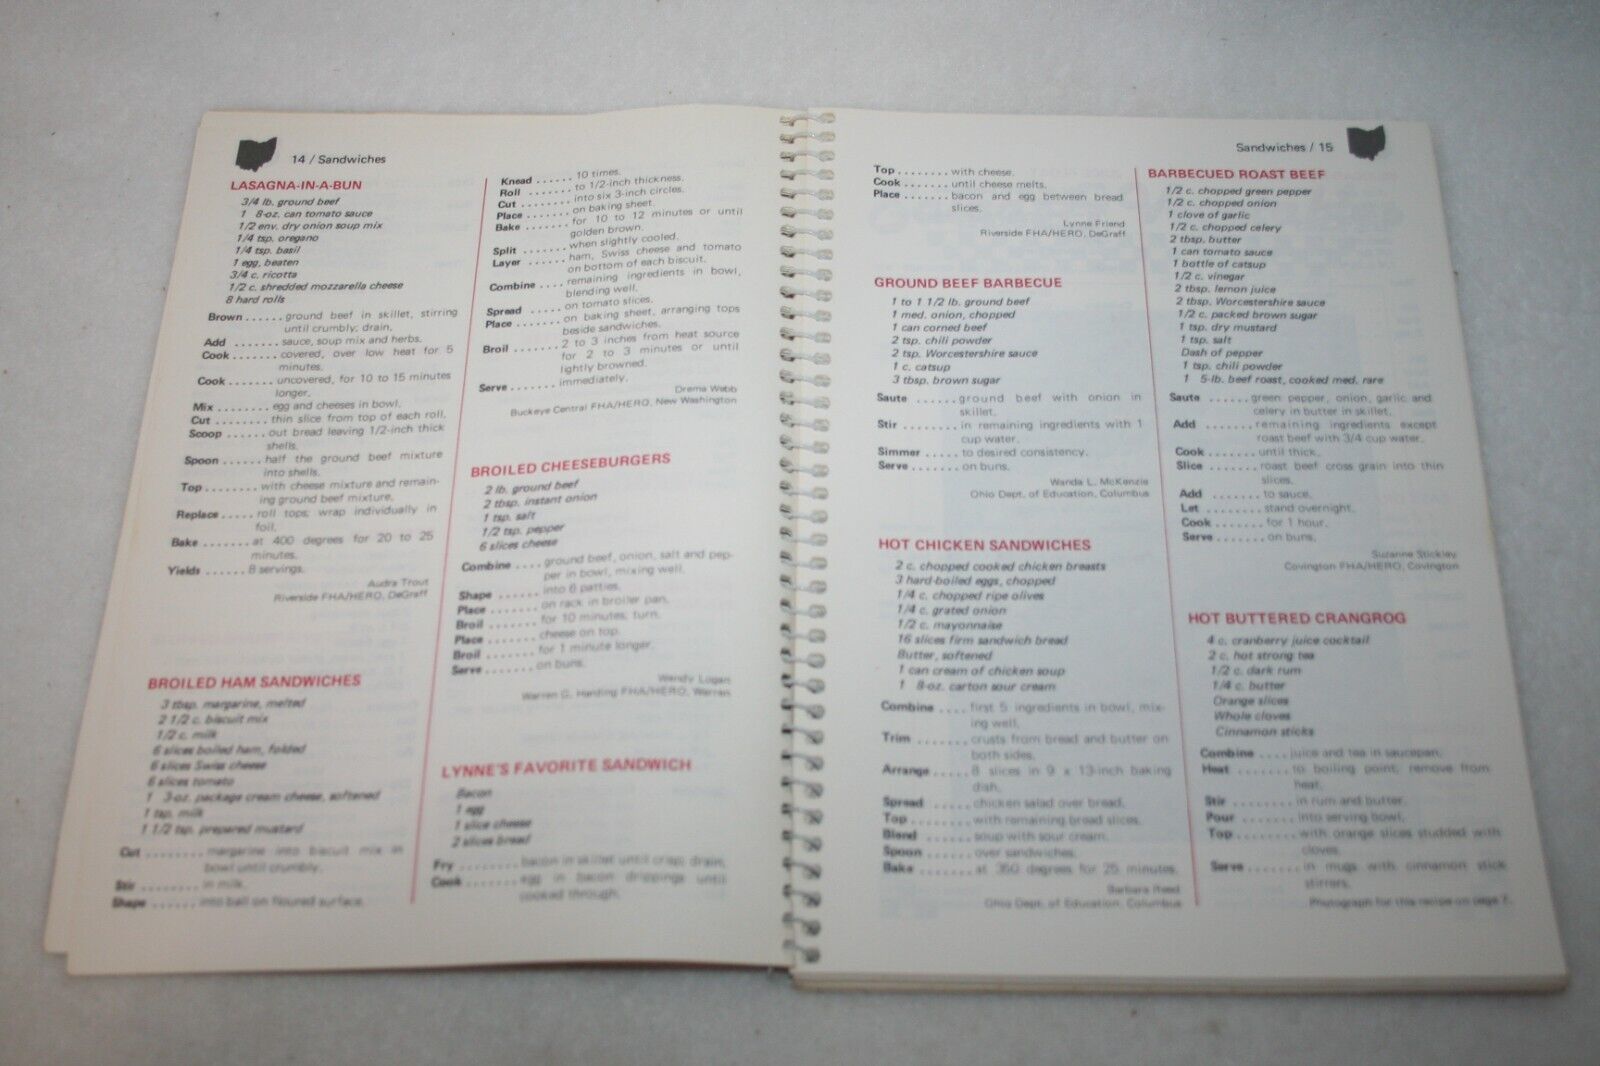 14 / Sandwiches
LASAGNA-IN-A-BUN
3/4 lb. ground beef
1 8-oz. can tomato sauce
1/2 env. dry onion soup mix
1/4 tsp. oregano
1/4 tsp. basil
1 egg, beaten
3/4 c. ricotta
1/2 c. shredded mozzarella cheese
8 hard rolls
Brown ...... ground beef in skillet, stirring
until crumbly; drain.
Add ....... sauce, soup mix and herbs.
Cook ....... covered, over low heat for 5
minutes.
Cook ....... uncovered, for 10 to 15 minutes
longer.
Mix ........ egg and cheeses in bowl.
Cut ........ thin slice from top of each roll.
Scoop ...... out bread leaving 1/2-inch thick
shells.
Spoon ...... half the ground beef mixture
into shells.
Top ........ with cheese mixture and remain-
ing ground beef mixture.
Replace ..... roll tops; wrap individually in
foil.
Bake ....... at 400 degrees for 20 to 25
minutes.
Yields ...... 8 servings.
Audra Trout
Riverside FHA/HERO, DeGraff
BROILED HAM SANDWICHES
3 tbsp. margarine, melted
2 1/2 c. biscuit mix
1/2 c. milk
6 slices boiled ham, folded
6 slices Swiss cheese
6 slices tomato
1 3-oz. package cream cheese, softened
1 tsp. milk
1 1/2 tsp. prepared mustard
Cut ........ margarine into biscuit mix in
bowl until crumbly.
Stir ........ in milk.
Shape ...... into ball on floured surface.
Knead ...... 10 times.
Roll ....... to 1/2-inch thickness.
Cut ........ into six 3-inch circles.
Place ....... on baking sheet.
Bake ....... for 10 to 12 minutes or until
golden brown.
Split ....... when slightly cooled.
Layer ...... ham, Swiss cheese and tomato
on bottom of each biscuit.
Combine .... remaining ingredients in bowl,
blending well.
Spread ..... on tomato slices.
Place ....... on baking sheet, arranging tops
beside sandwiches.
Broil ....... 2 to 3 inches from heat source
for 2 to 3 minutes or until
lightly browned.
Serve ....... immediately.
Drema Webb
Buckeye Central FHA/HERO, New Washington
BROILED CHEESEBURGERS
2 lb. ground beef
2 tbsp. instant onion
1 tsp. salt
1/2 tsp. pepper
6 slices cheese
Combine .... ground beef, onion, salt and pep-
per in bowl, mixing well.
Shape ...... into 6 patties.
Place ....... on rack in broiler pan.
Broil ....... for 10 minutes, turn.
Place ....... cheese on top.
Broil ....... for 1 minute longer.
Serve ....... on buns.
Wendy Logan
Warren G. Harding FHA/HERO, Warren
LYNNE'S FAVORITE SANDWICH
Bacon
1 egg
1 slice cheese
2 slices bread
Fry ........ bacon in skillet until crisp; drain.
Cook ....... egg in bacon drippings until
cooked through.
Sandwiches / 15
Top ........ with cheese.
Cook ....... until cheese melts.
Place ....... bacon and egg between bread
slices.
Lynne Friend
Riverside FHA/HERO, DeGraff
GROUND BEEF BARBECUE
1 to 1 1/2 lb. ground beef
1 med. onion, chopped
1 can corned beef
2 tsp. chili powder
2 tsp. Worcestershire sauce
1 c. catsup
3 tbsp. brown sugar
Saute ...... ground beef with onion in
skillet.
Stir ........ in remaining ingredients with 1
cup water.
Simmer ..... to desired consistency.
Serve ....... on buns.
Wanda L. McKenzie
Ohio Dept. of Education, Columbus
HOT CHICKEN SANDWICHES
2 c. chopped cooked chicken breasts
3 hard-boiled eggs, chopped
1/4 c. chopped ripe olives
1/4 c. grated onion
1/2 c. mayonnaise
16 slices firm sandwich bread
Butter, softened
1 can cream of chicken soup
1 8-oz. carton sour cream
Combine .... first 5 ingredients in bowl, mix-
ing well.
Trim ....... crusts from bread and butter on
both sides.
Arrange ..... 8 slices in 9 x 13-inch baking
dish.
Spread ..... chicken salad over bread.
Top ........ with remaining bread slices.
Blend ...... soup with sour cream.
Spoon ...... over sandwiches.
Bake ....... at 350 degrees for 25 minutes.
Barbara Reed
Ohio Dept. of Education, Columbus
BARBECUED ROAST BEEF
1/2 c. chopped green pepper
1/2 c. chopped onion
1 clove of garlic
1/2 c. chopped celery
2 tbsp. butter
1 can tomato sauce
1 bottle of catsup
1/2 c. vinegar
2 tbsp. lemon juice
2 tbsp. Worcestershire sauce
1/2 c. packed brown sugar
1 tsp. dry mustard
1 tsp. salt
Dash of pepper
1 tsp. chili powder
1 5-lb. beef roast, cooked med. rare
Saute ...... green pepper, onion, garlic and
celery in butter in skillet.
Add ....... remaining ingredients except
roast beef with 3/4 cup water.
Cook ....... until thick.
Slice ....... roast beef cross grain into thin
slices.
Add ....... to sauce.
Let ........ stand overnight.
Cook ....... for 1 hour.
Serve ....... on buns.
Suzanne Stickley
Covington FHA/HERO, Covington
HOT BUTTERED CRANGROG
4 c. cranberry juice cocktail
2 c. hot strong tea
1/2 c. dark rum
1/4 c. butter
Orange slices
Whole cloves
Cinnamon sticks
Combine .... juice and tea in saucepan.
Heat ....... to boiling point; remove from
heat.
Stir ........ in rum and butter.
Pour ....... into serving bowl.
Top ........ with orange slices studded with
cloves.
Serve ....... in mugs with cinnamon stick
stirrers.
Photograph for this recipe on page 7.